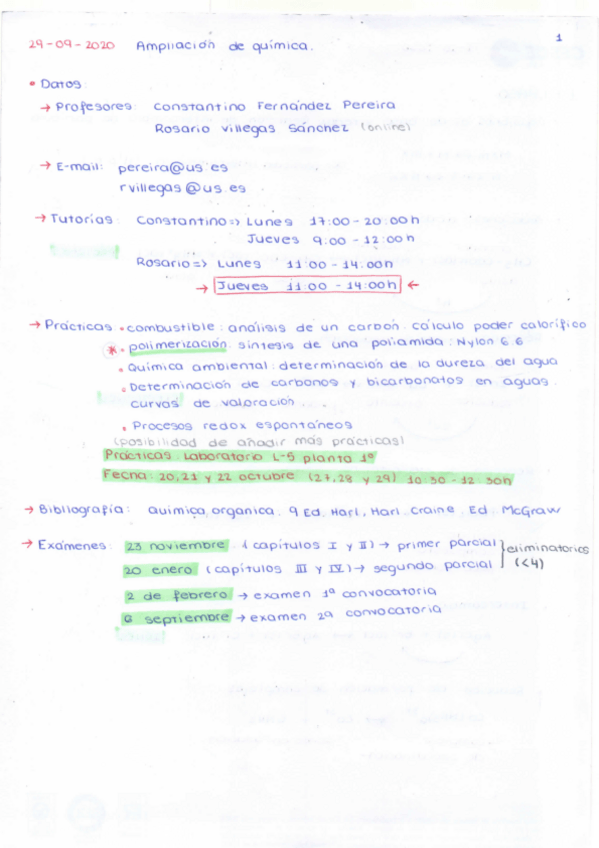 1
29-09-2020 Ampliación de química.
• Datos:
→ Profesores: Constantino Fernández Pereira
Rosario Villegas Sánchez (online)
→ E-mail: pereira@us.es
rvillegas@us.es
→ Tutorías: Constantino => Lunes 17:00 - 20:00h
Jueves 9:00 - 12:00h
Rosario => Lunes 11:00 - 14:00h
→ Jueves 11:00 - 14:00h ←
→ Prácticas • combustible: análisis de un carbón. cálculo poder calorífico
* • polimerización: síntesis de una poliamida: Nylon 6 6
• Química ambiental: determinación de la dureza del agua
• Determinación de carbonos y bicarbonatos en aguas.
curvas de valoración.
• Procesos redox espontáneos
(posibilidad de añadir más prácticas)
Prácticas: Laboratorio L-5 planta 1ª
Fecha: 20, 21 y 22 octubre (27, 28 y 29) 10:30 - 12:30h
→ Bibliografía: Química orgánica. 9 Ed. Harl, Harl, Craine, Ed. McGraw
→ Exámenes: 23 noviembre (capítulos I y II) → primer parcial } eliminatorios
20 enero (capítulos III y IV) → segundo parcial (<4)
2 de febrero → examen 1ª convocatoria
6 septiembre → examen 2ª convocatoria